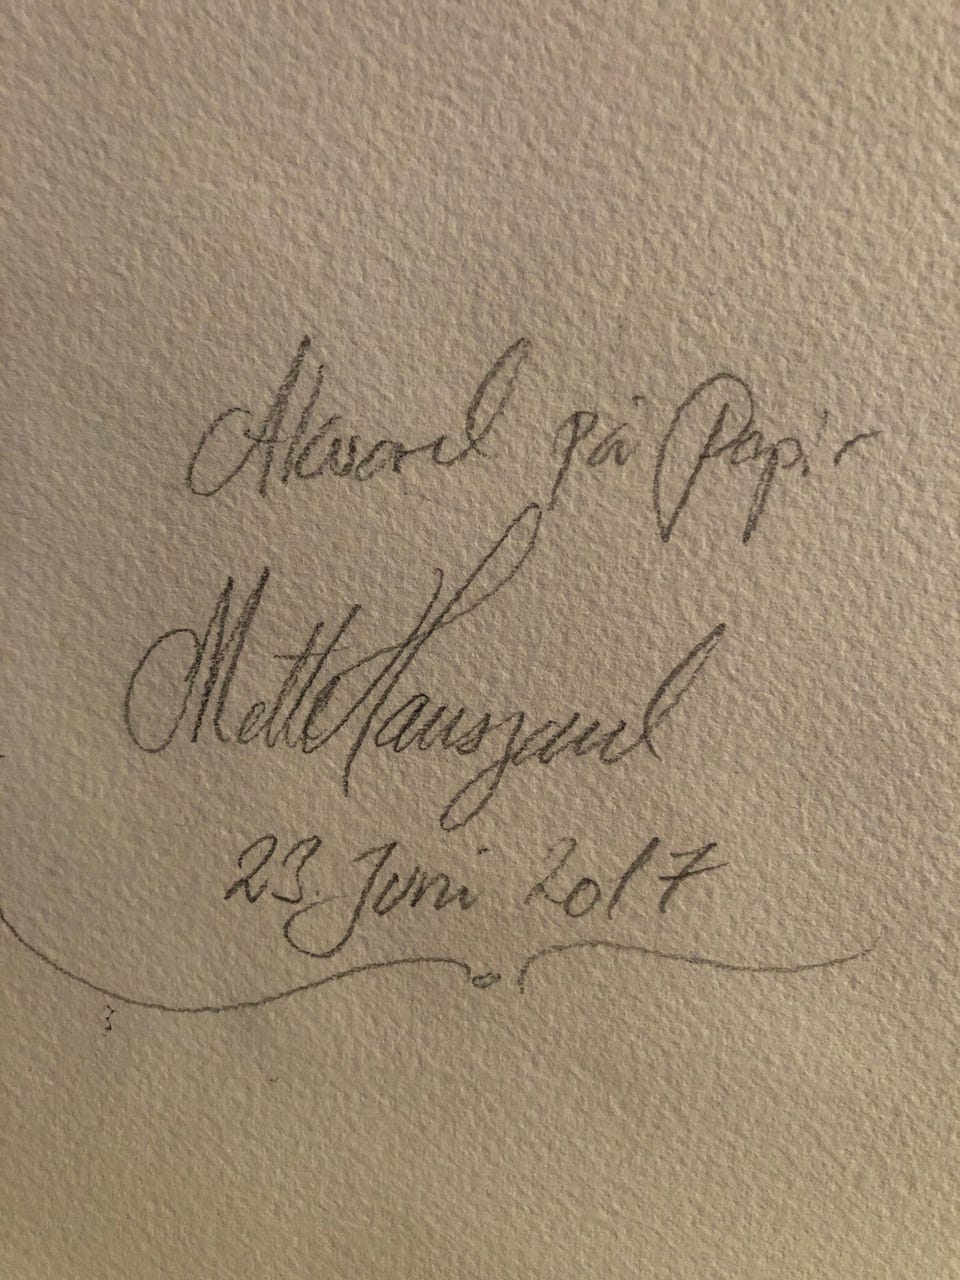 Akvarel på Papir
Mette Hansgaard
23. Juni 2017